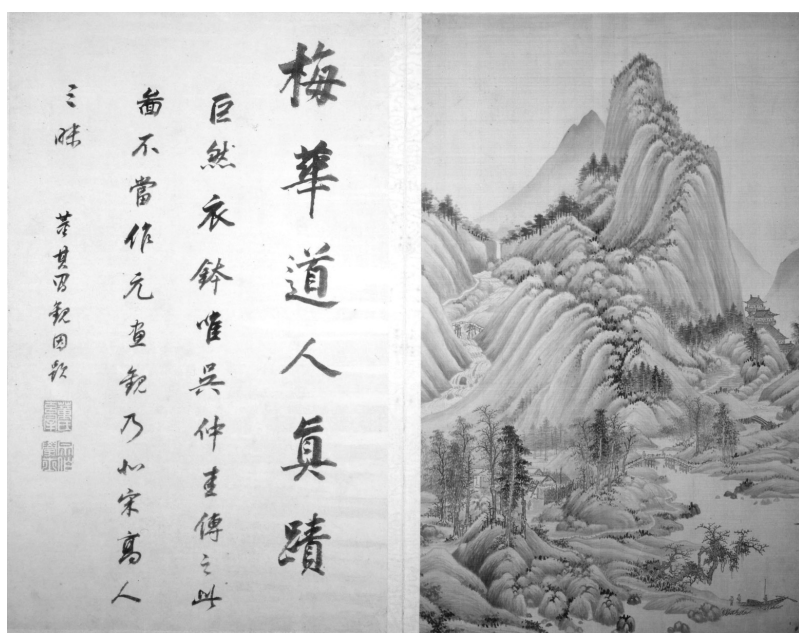 梅華道人眞蹟
巨然衣鉢唯吳仲圭傳之此
啚不當作元畫觀乃北宋高人
三昧 董其昌觀因題